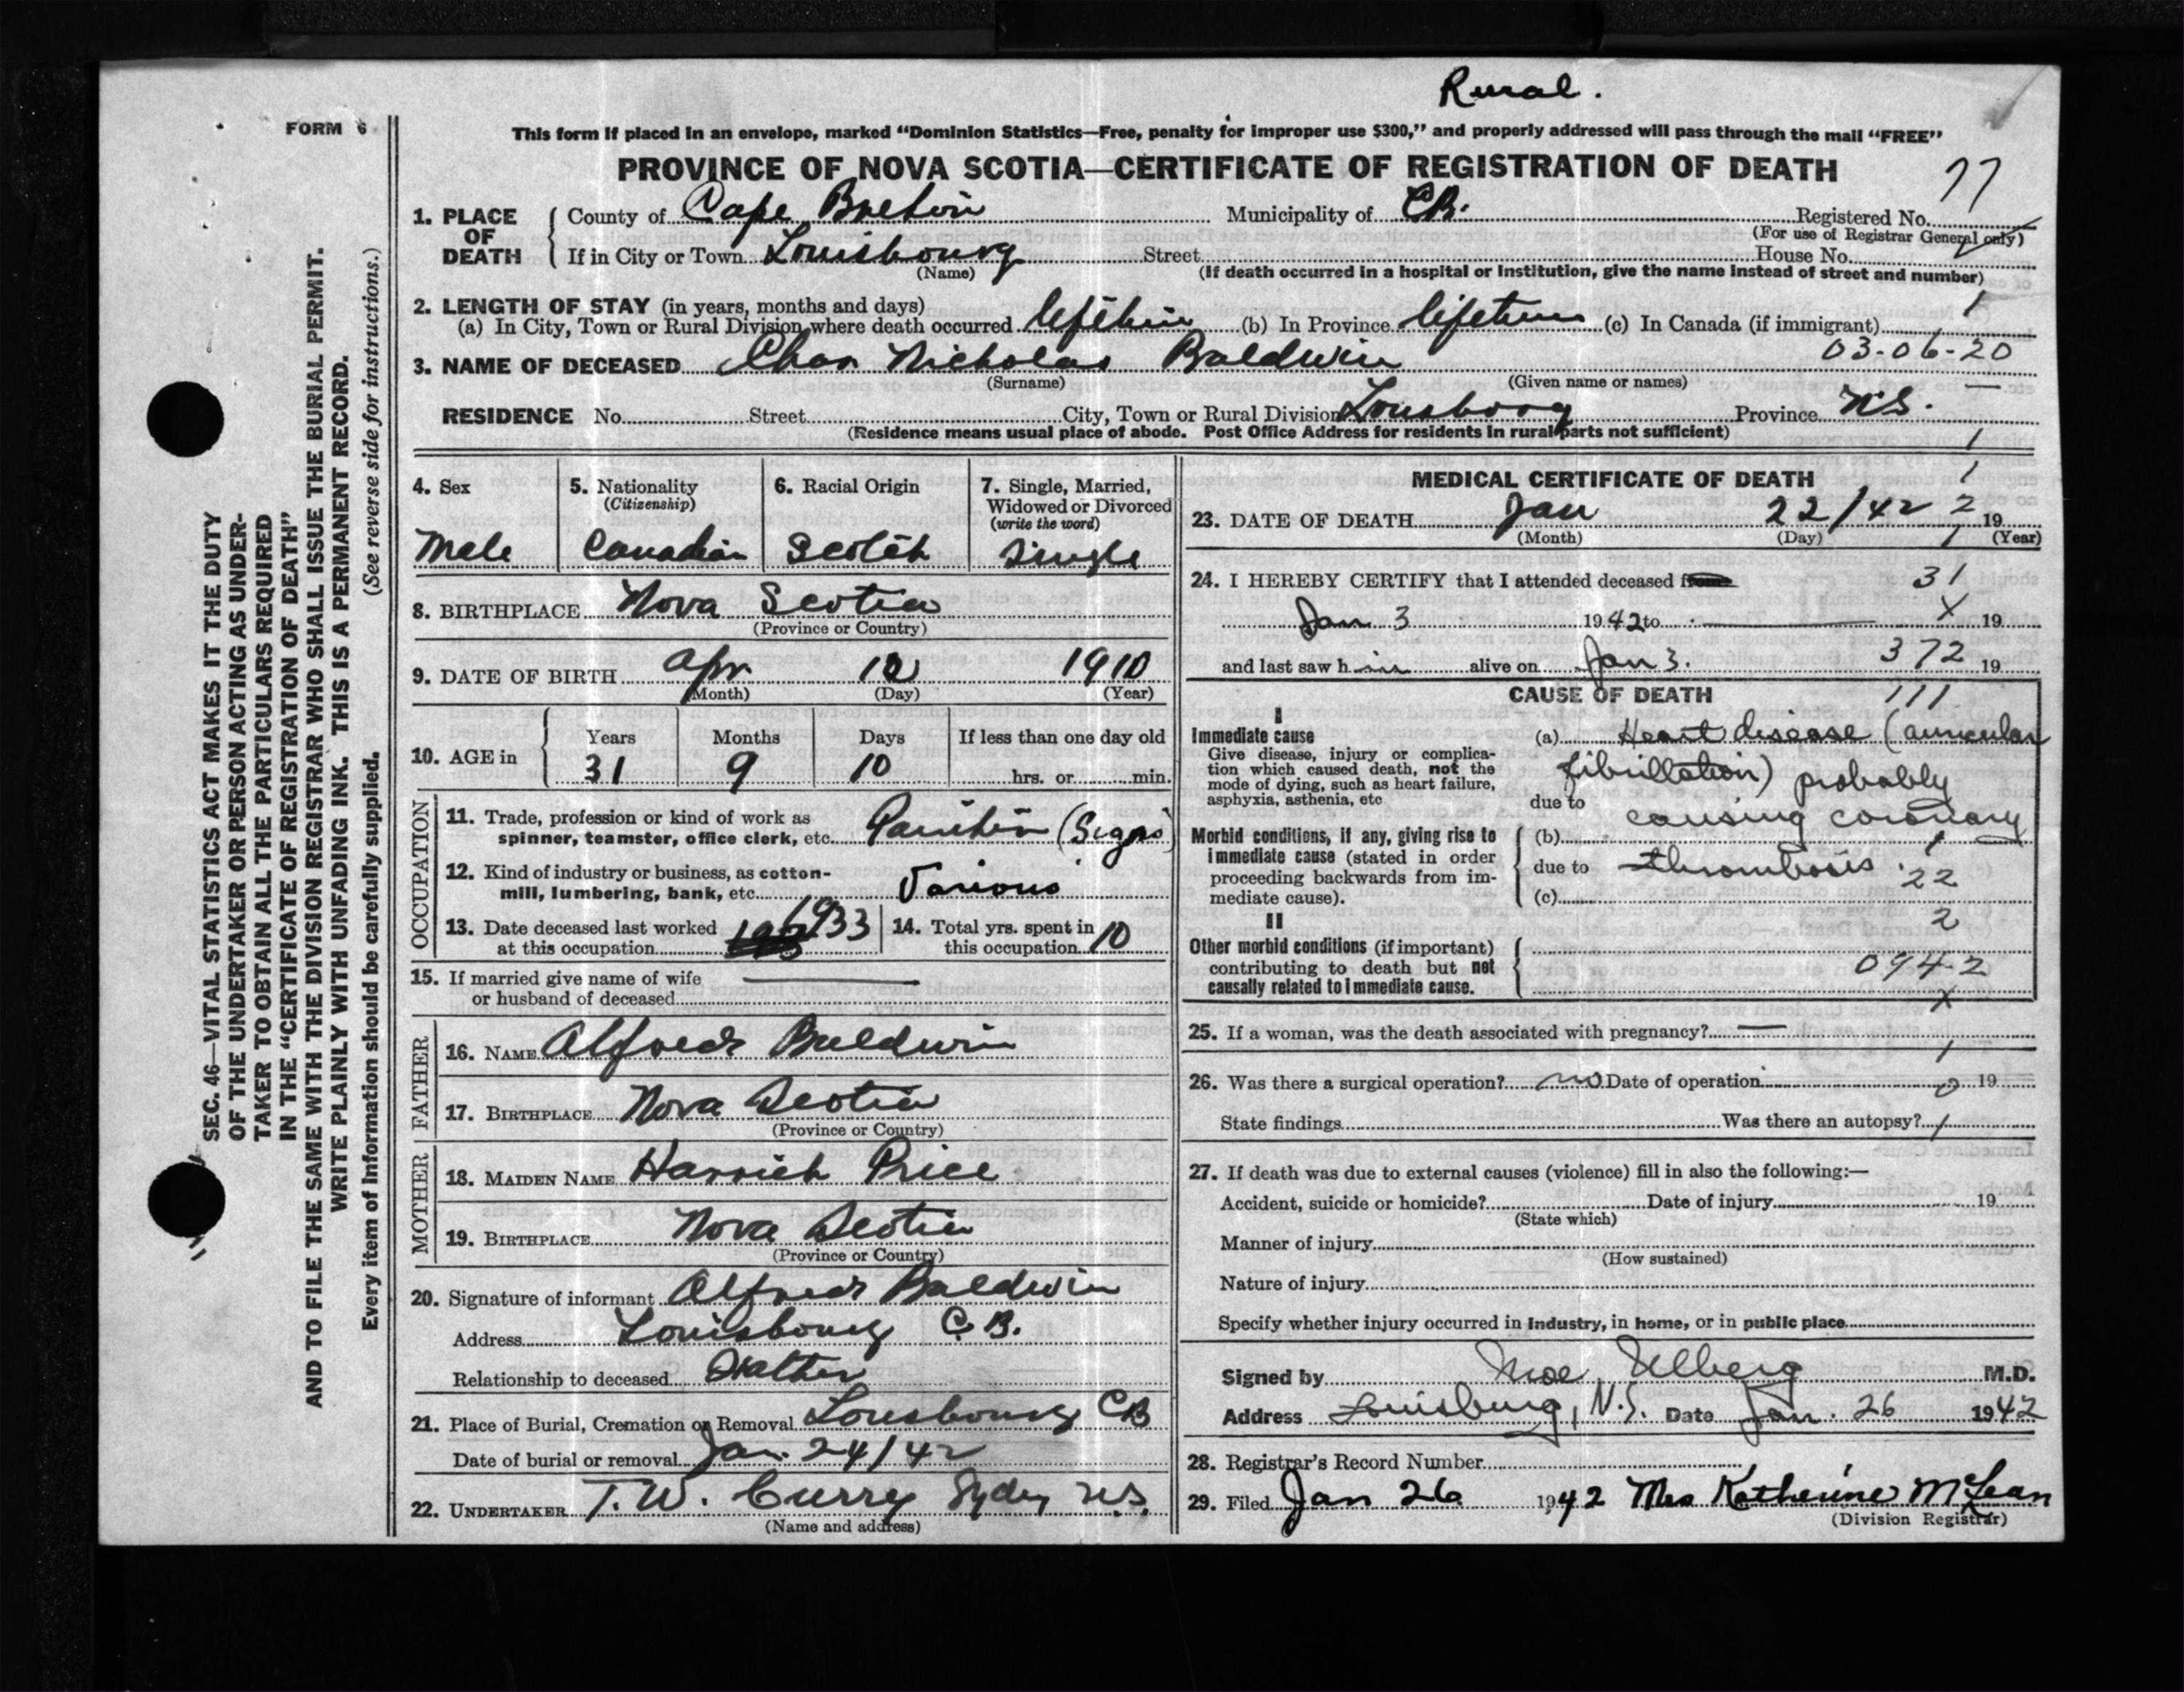 Rural.
FORM 6
This form if placed in an envelope, marked "Dominion Statistics—Free, penalty for improper use $300," and properly addressed will pass through the mail "FREE"
PROVINCE OF NOVA SCOTIA—CERTIFICATE OF REGISTRATION OF DEATH
77
1. PLACE OF DEATH County of Cape Breton Municipality of C.B. Registered No.
(For use of Registrar General only)
If in City or Town Louisbourg Street House No.
(Name) (If death occurred in a hospital or institution, give the name instead of street and number)
2. LENGTH OF STAY (in years, months and days) 1
(a) In City, Town or Rural Division where death occurred lifetime (b) In Province lifetime (c) In Canada (if immigrant)
03-06-20
3. NAME OF DECEASED Chas Nicholas Baldwin
(Surname) (Given name or names)
RESIDENCE No. Street City, Town or Rural Division Lousbourg Province N.S.
(Residence means usual place of abode. Post Office Address for residents in rural parts not sufficient) 1
4. Sex Male
5. Nationality (Citizenship) Canadian
6. Racial Origin Scotch
7. Single, Married, Widowed or Divorced (write the word) Single
8. BIRTHPLACE Nova Scotia
(Province or Country)
9. DATE OF BIRTH Apr 12 1910
(Month) (Day) (Year)
10. AGE in Years Months Days If less than one day old
31 9 10 hrs. or min.
OCCUPATION
11. Trade, profession or kind of work as
spinner, teamster, office clerk, etc. (Signs)
12. Kind of industry or business, as cotton-
mill, lumbering, bank, etc. Various
13. Date deceased last worked
at this occupation 1933
14. Total yrs. spent in
this occupation 10
15. If married give name of wife
or husband of deceased
FATHER
16. NAME Alfred Baldwin
17. BIRTHPLACE Nova Scotia
(Province or Country)
MOTHER
18. MAIDEN NAME Price
19. BIRTHPLACE Nova Scotia
(Province or Country)
20. Signature of informant Alfred Baldwin
Address Louisbourg C.B.
Relationship to deceased
21. Place of Burial, Cremation or Removal Lousbourg CB
Date of burial or removal Jan. 24/42
22. UNDERTAKER T.W. Curry Sydney N.S.
(Name and address)
MEDICAL CERTIFICATE OF DEATH 1
23. DATE OF DEATH Jan 22/42 2 19
(Month) (Day) 1 (Year)
24. I HEREBY CERTIFY that I attended deceased from 31
Jan 3 1942 to X 19
and last saw h im alive on Jan 3. 372 19
CAUSE OF DEATH 111
I
Immediate cause
Give disease, injury or complica-
tion which caused death, not the
mode of dying, such as heart failure,
asphyxia, asthenia, etc
(a) Heart disease (auricular
fibrillation) probably
due to
causing coronary
Morbid conditions, if any, giving rise to
immediate cause (stated in order
proceeding backwards from im-
mediate cause).
(b) 1
due to thrombosis. 22
(c)
II 2
Other morbid conditions (if important)
contributing to death but not
causally related to immediate cause.
094-2
X
25. If a woman, was the death associated with pregnancy? —
1
26. Was there a surgical operation? no Date of operation 0 19
State findings Was there an autopsy? 1
27. If death was due to external causes (violence) fill in also the following:—
Accident, suicide or homicide? Date of injury 19
(State which)
Manner of injury
(How sustained)
Nature of injury
Specify whether injury occurred in industry, in home, or in public place
Signed by M.D.
Address Louisburg, N.S. Date Jan. 26 1942
28. Registrar's Record Number
29. Filed Jan 26 1942 Mrs Katherine McLean
(Division Registrar)
SEC. 46—VITAL STATISTICS ACT MAKES IT THE DUTY
OF THE UNDERTAKER OR PERSON ACTING AS UNDER-
TAKER TO OBTAIN ALL THE PARTICULARS REQUIRED
IN THE "CERTIFICATE OF REGISTRATION OF DEATH"
AND TO FILE THE SAME WITH THE DIVISION REGISTRAR WHO SHALL ISSUE THE BURIAL PERMIT.
WRITE PLAINLY WITH UNFADING INK. THIS IS A PERMANENT RECORD.
Every item of Information should be carefully supplied. (See reverse side for instructions.)